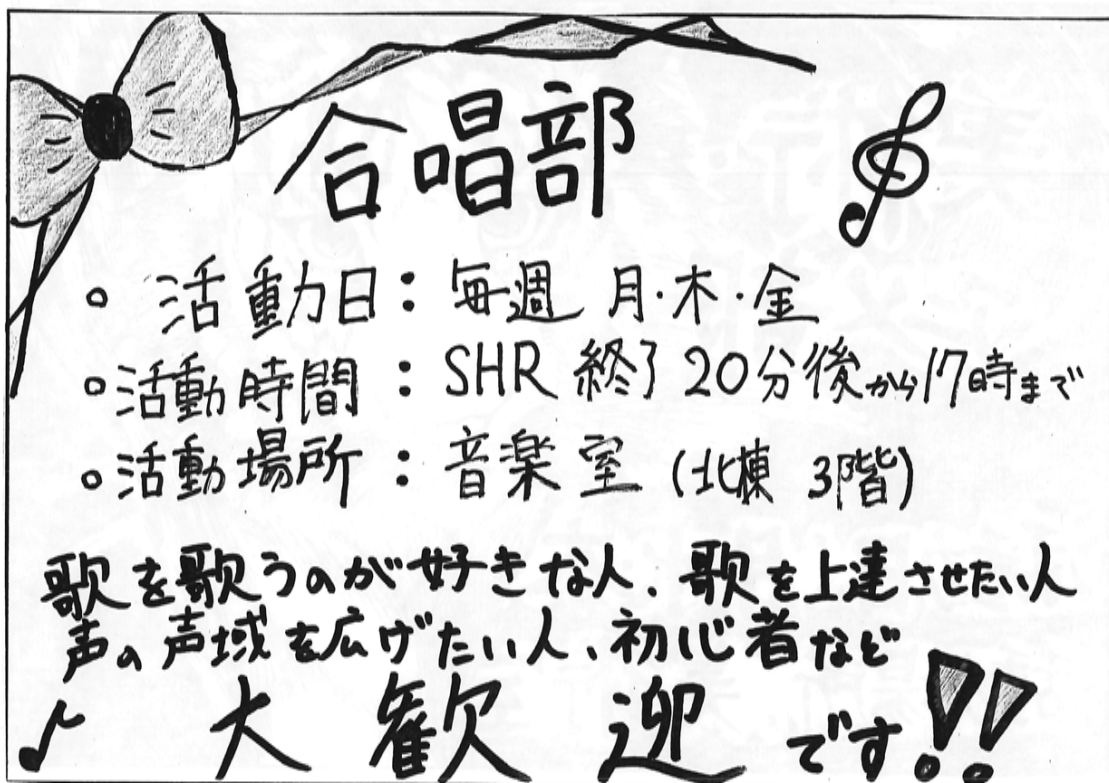 合唱部
。活動日：毎週 月・木・金
。活動時間：SHR 終了 20分後から17時まで
。活動場所：音楽室 (北棟 3階)
歌を歌うのが好きな人、歌を上達させたい人
声の声域を広げたい人、初心者など
大歓迎です!!